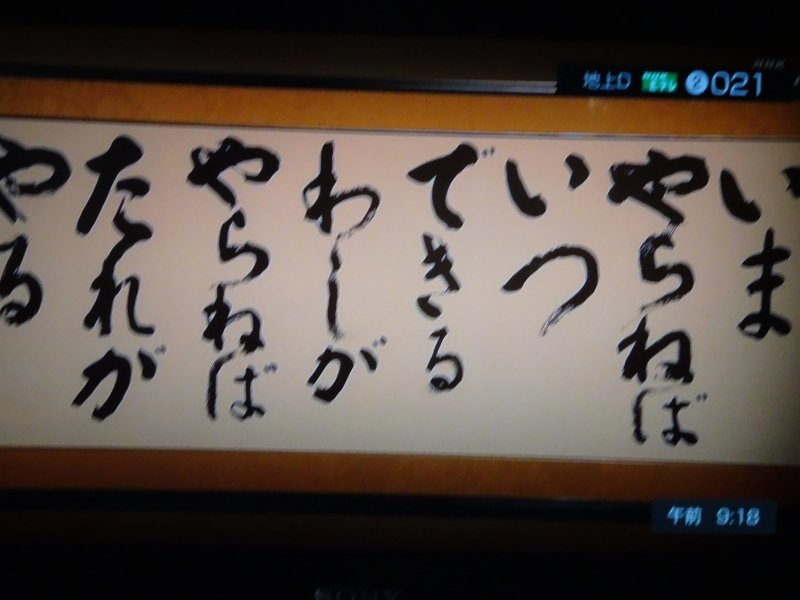 いま
やらねば
いつ
できる
わしが
やらねば
たれが
やる
地上D NHK Eテレ 2 021
NHK
午前 9:18
SONY